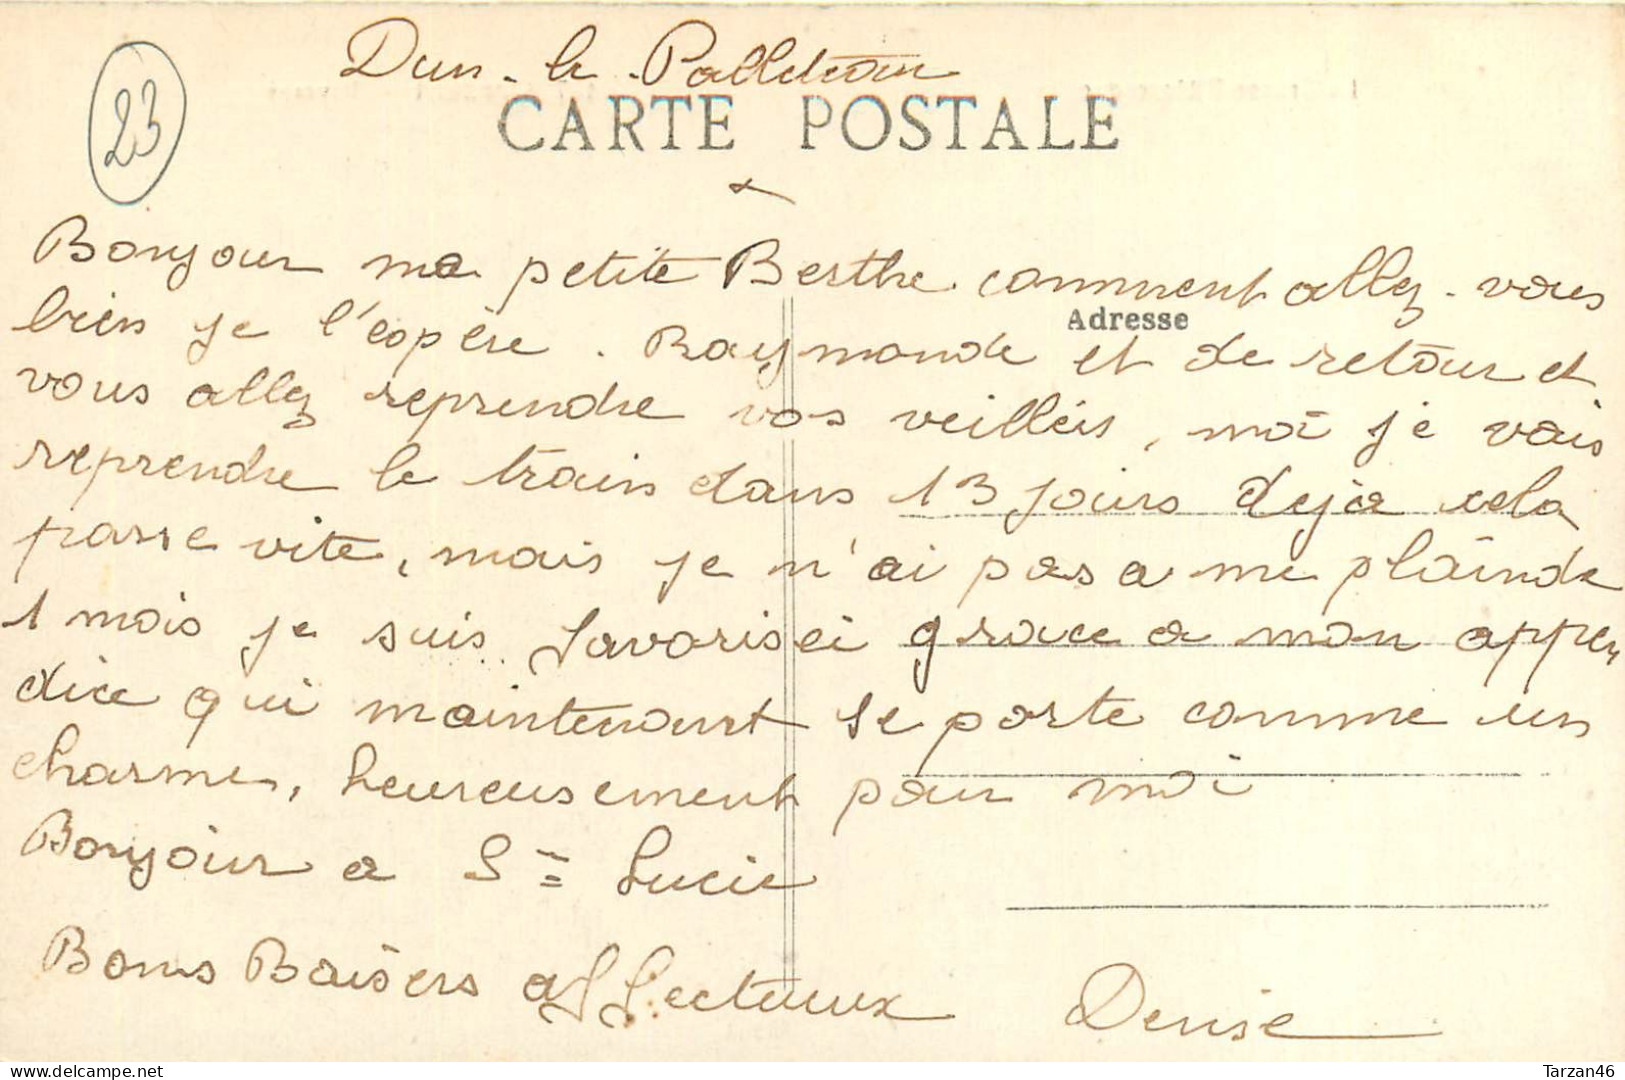 Dun-le-Palleteau
23
CARTE POSTALE
Bonjour ma petite Berthe comment allez-vous
Adresse
bien je l'espère. Raymonde et de retour et
vous allez reprendre vos veilléis, moi je vais
reprendre le train dans 13 jours dejà cela
passe vite, mais je n'ai pas a me plainde
1 mois je suis favorisei grace a mon appen
dice qui maintenant se porte comme un
charme, heureusement pour moi
Bonjour a Ste Lucie
Bons Baisers affectueux Denise
Tarzan46
delcampe.net